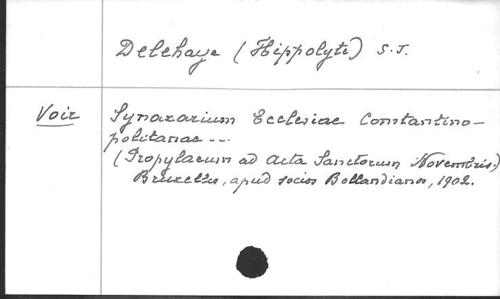 Delehaye (Hippolyte) S.J.
Voir Synaxarium Ecclesiae Constantino-
politanae ---
(Propylaeum ad Acta Sanctorum Novembris.)
Bruxellis, apud socios Bollandianos, 1902.